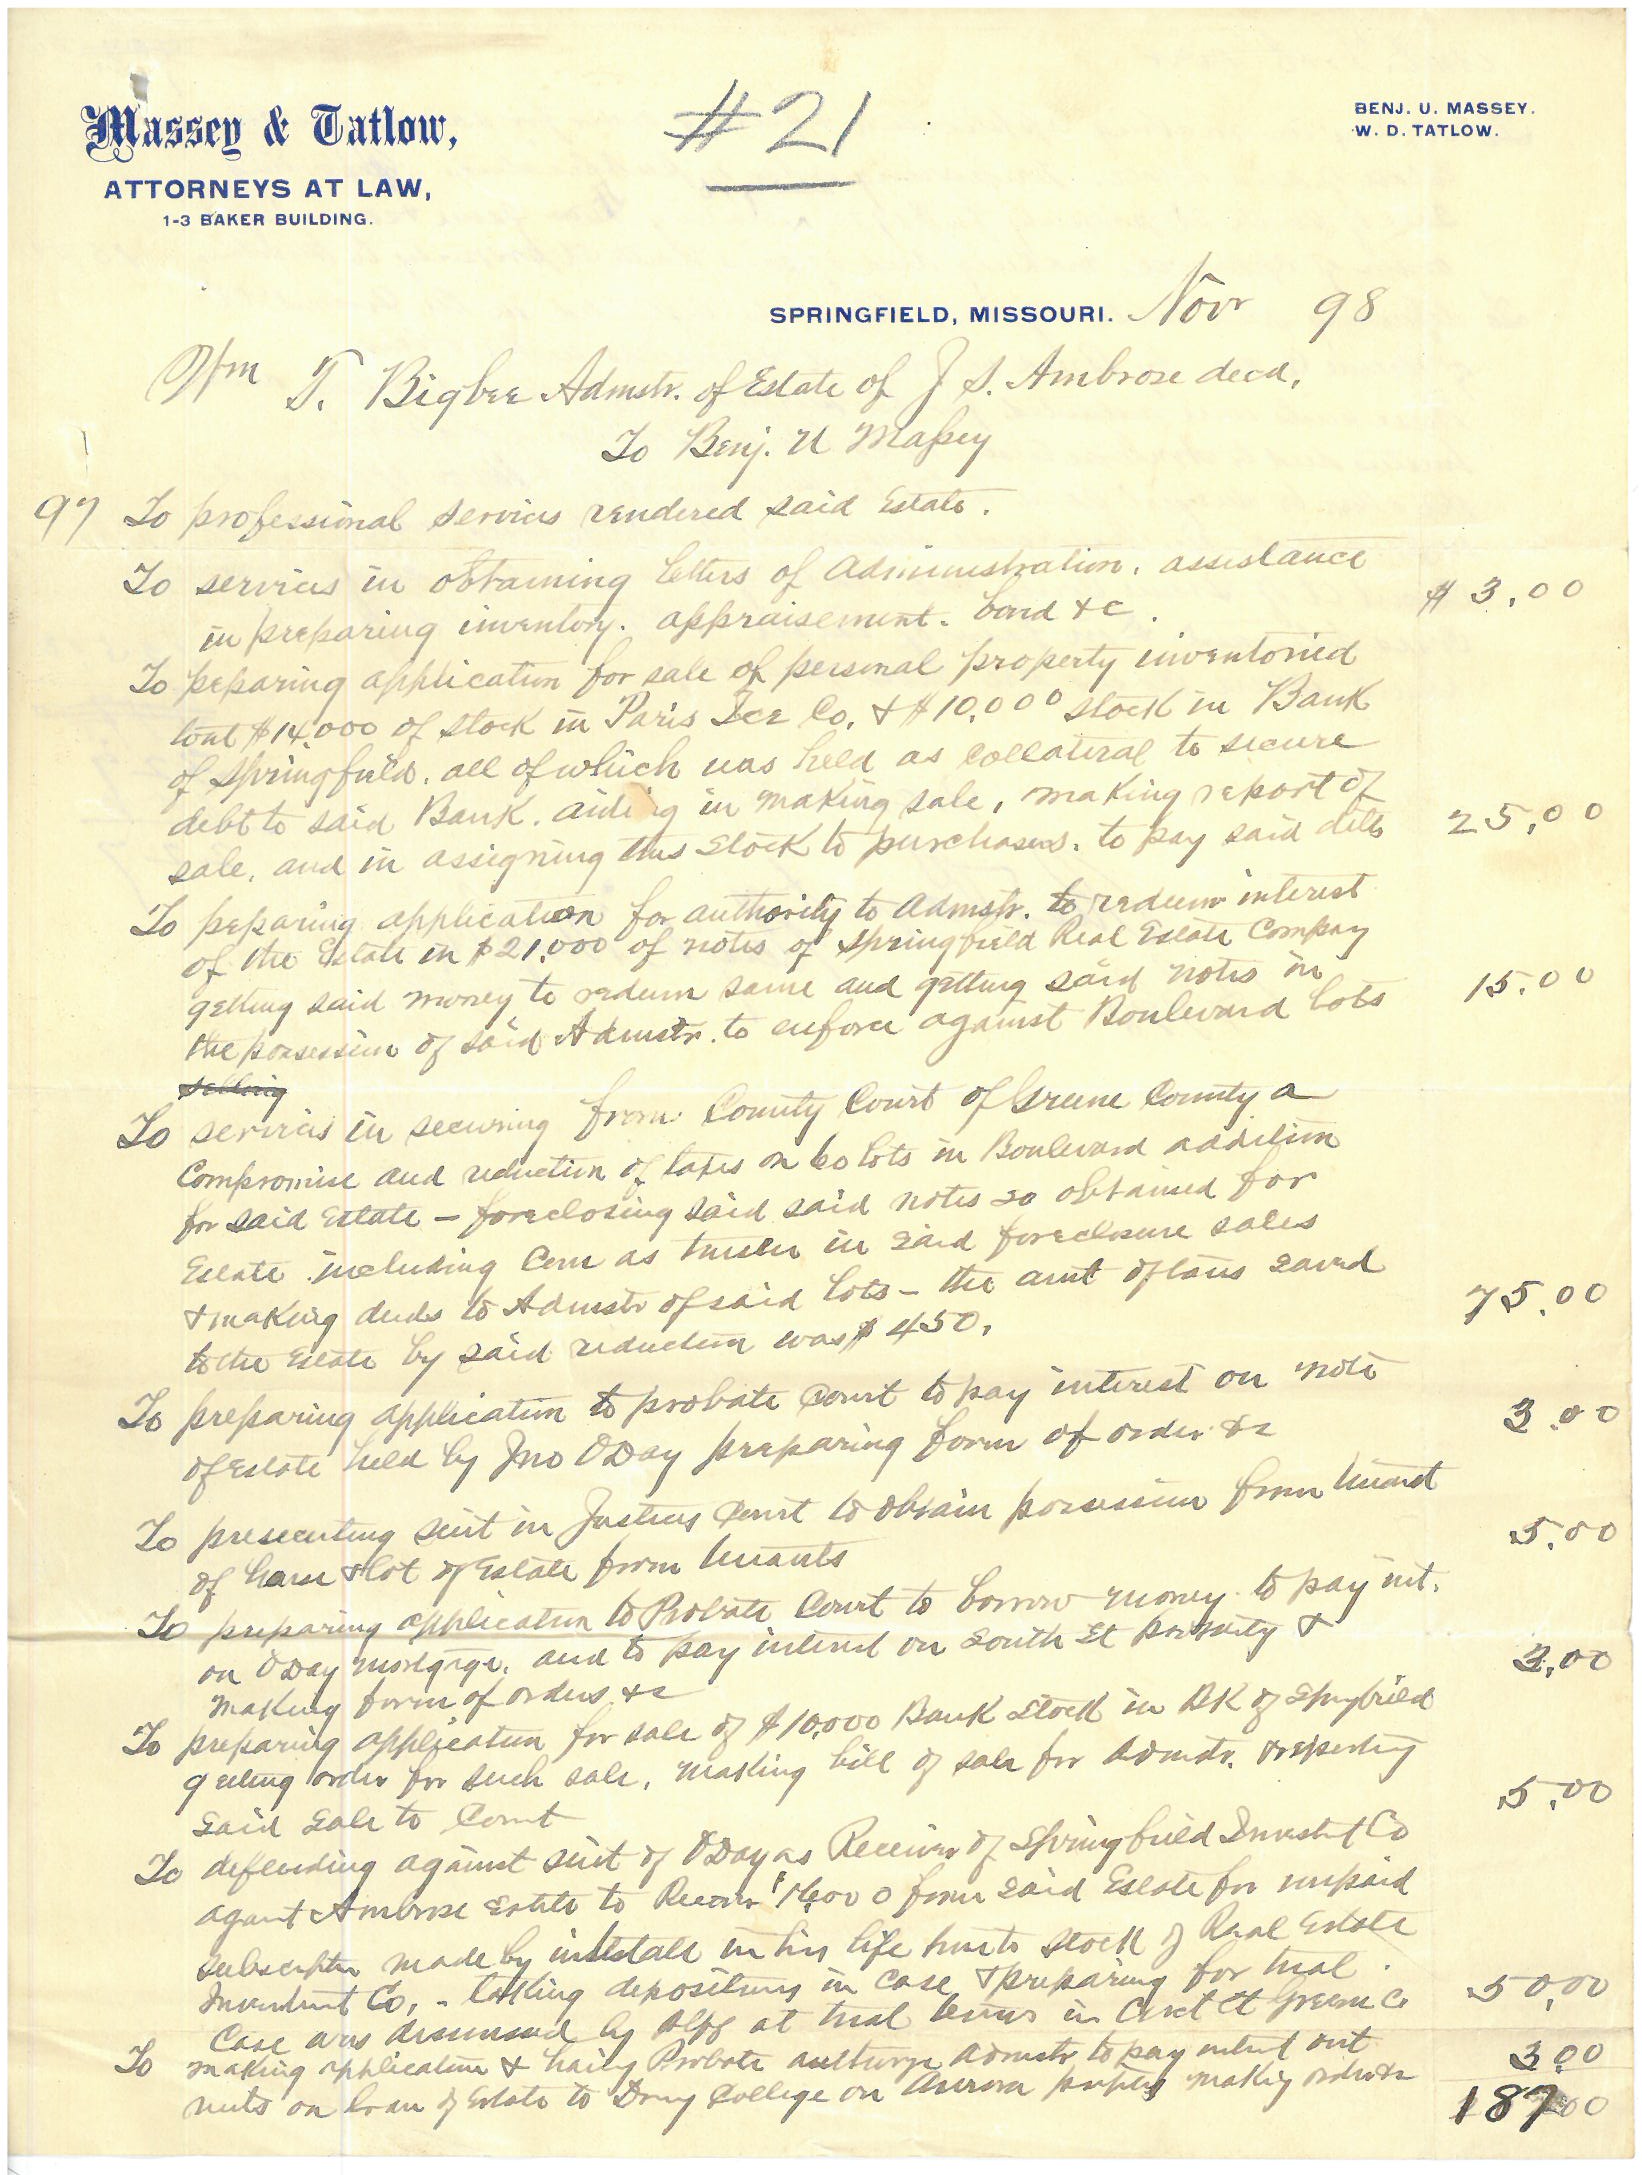 #21
Massey & Tatlow,
ATTORNEYS AT LAW,
1-3 BAKER BUILDING.
BENJ. U. MASSEY.
W. D. TATLOW.
SPRINGFIELD, MISSOURI. Novr 98
Wm T. Bigbee Admstr. of Estate of J S. Ambrose decd.
To Benj. U Massey
97 To professional services rendered said Estate.
To services in obtaining letters of Administration. assistance
in preparing inventory. appraisement. bond &c. $3.00
To preparing application for sale of personal property inventoried
$14,000 of stock in Paris Ice Co. & $10,000 stock in Bank
of Springfield. all of which was held as collateral to secure
debt to said Bank. aiding in making sale, making report of
sale, and in assigning this stock to purchasers. to pay said debts 25.00
To preparing application for authority to Admstr. to redeem interest
of the Estate in $21,000 of notes of Springfield Real Estate Company
getting said money to redeem same and getting said notes in
the possession of said Admstr. to enforce against Boulevard lots 15.00
selling
To services in securing from County Court of Greene County a
Compromise and reduction of taxes on 60 lots in Boulevard addition
for said Estate – foreclosing said said notes so obtained for
Estate including Com as trustee in said foreclosure sales
& making deeds to Admstr of said lots – the amt of taxes saved
to the Estate by said reduction was $450. 75.00
To preparing application to probate Court to pay interest on note
of Estate held by Jno ODay preparing form of order &c 3.00
To prosecuting suit in Justices Court to obtain possession from tenant
of house & lot of Estate from tenants 5.00
To preparing application to Probate Court to borrow money to pay int.
on ODay mortgage. and to pay interest on South St property &
making form of orders &c 3.00
To preparing application for sale of $10,000 Bank Stock in Bk of Springfield
getting order for such sale, making bill of sale for Admstr. & reporting
said sale to Court 5.00
To defending against suit of ODay as Receiver of Springfield Investmt Co
against Ambrose Estate to Recover from said Estate for unpaid
subscription made by intestate in his life time to stock of Real Estate
Investment Co, – taking depositions in case & preparing for trial.
Case was dismissed by Plff at trial term in Circt Ct Greene Co 50.00
To making application & having Probate authorize Admstr to pay interest out
rents on loan of Estate to Drury College on Aurora property making orders &c 3.00
187.00